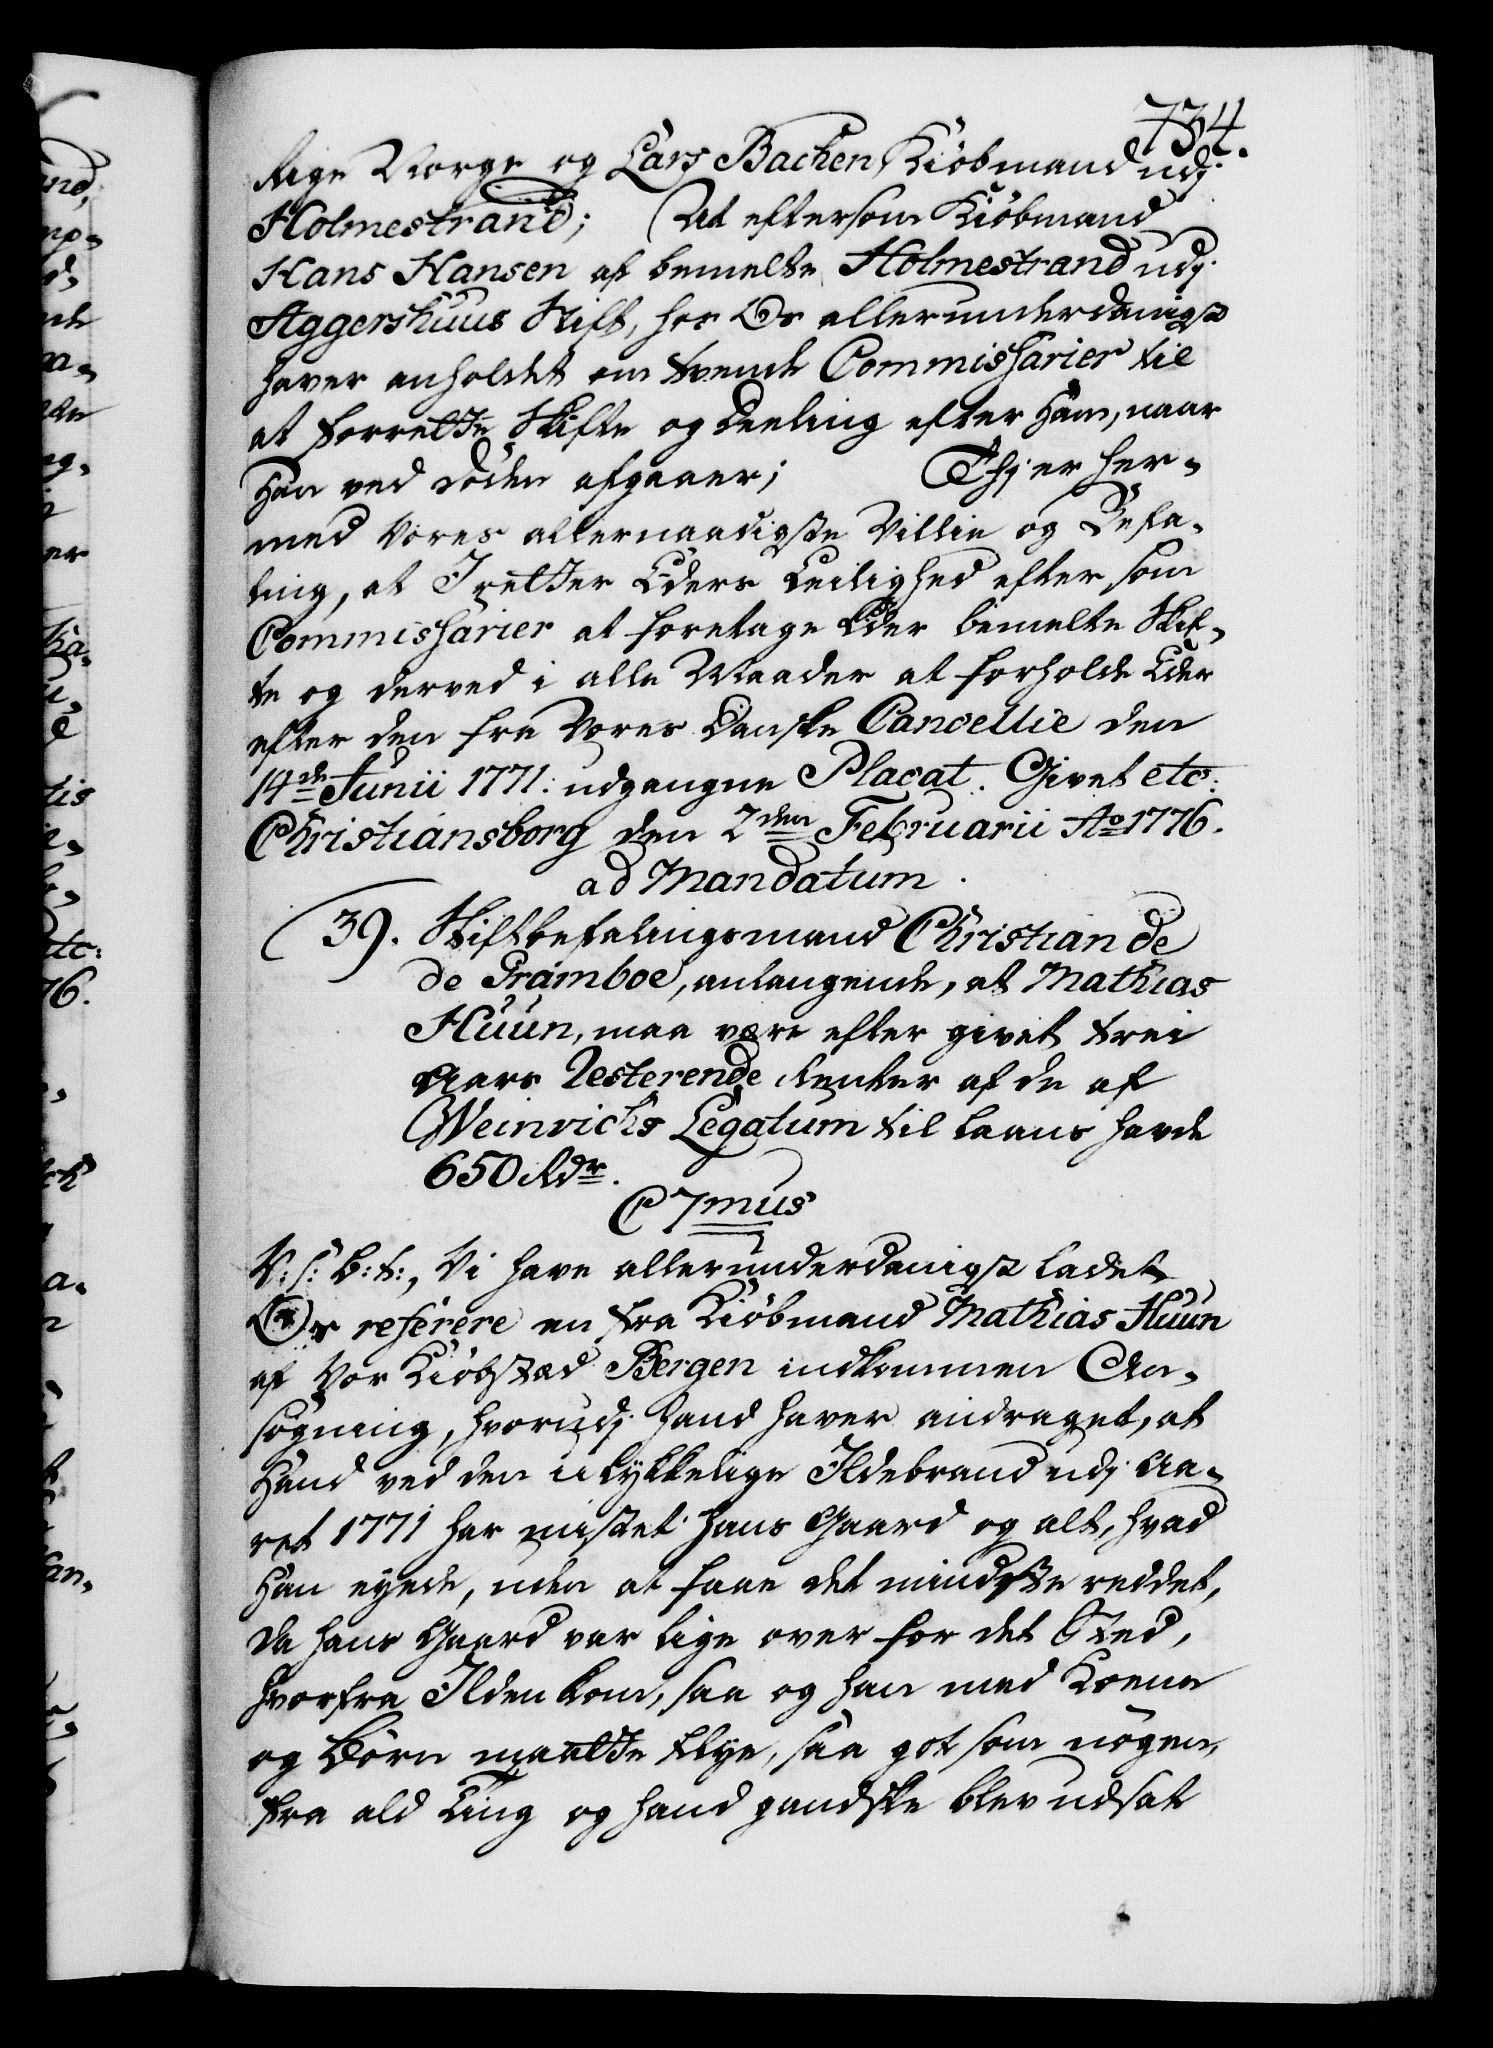 734.
Rige Norge og Lars Bachen Kiöbmand udj
Holmestrand; At eftersom Kiöbmand
Hans Hansen af bemelte Holmestrand udj
Aggershuus Stift, hos Os allerunderdanigst
haver anholdet om tvende Commissarier til
at forrette Skifte og Deeling efter Ham, naar
Han ved Döden afgaaer; Thj er her-
med Vores allernaadigste Villie og Befa-
ling, at I retter Eders Leilighed efter som
Commissarier at foretage Eder bemelte Skif-
te og derved i alle Maader at forholde Eder
efter den fra Vores Danske Cancellie den
14de Junii 1771: udgangne Placat. Givet etc:
Christiansborg den 2den Februarii Ao 1776.
ad Mandatum.
39. Stiftbefalingsmand Christian de
de Pramboe, anlangende, at Mathias
Huun, maa være efter givet trei
Aars Resterende Renter af de af
Weinrichs Legatum til laans havde
650 Rdr.
C 7mus
V: s: b: t:, Vi have allerunderdanigst ladet
Os referere en fra Kiöbmand Mathias Huun
af Vor Kiöbstæd Bergen indkommen An-
sögning, hvorudj hand haver andraget, at
Hand ved den ulykkelige Ildebrand udj Aa-
ret 1771 har mistet hans Gaard og alt, hvad
Han eyede, uden at faae det mindste reddet,
da hans Gaard var lige over for det Sted,
hvorfra Ilden kom, saa og han med Koene
og Börn maatte flye, saa got som nögen,
fra ald Ting og hand gandske blev udsat